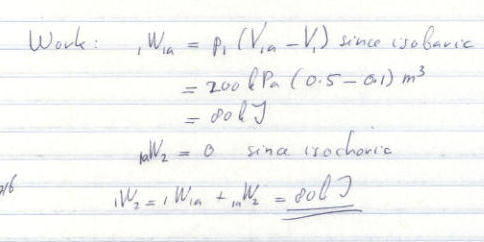 Work: ₁W₁ₐ = P₁ (V₁ₐ - V₁) since isobaric
= 200 kPa (0.5 - 0.1) m³
= 80 kJ
₁ₐW₂ = 0 since isochoric
₁W₂ = ₁W₁ₐ + ₁ₐW₂ = 80 kJ